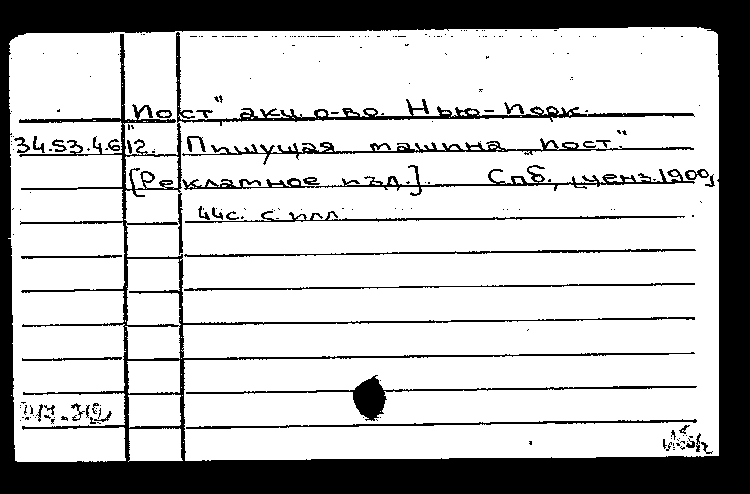 "Пост", акц. о-во. Нью-Йорк.
34.53.4.6 12. Пишущая машина "Пост."
[Рекламное изд.]. Спб., ценз. 1909,
44с. с илл.